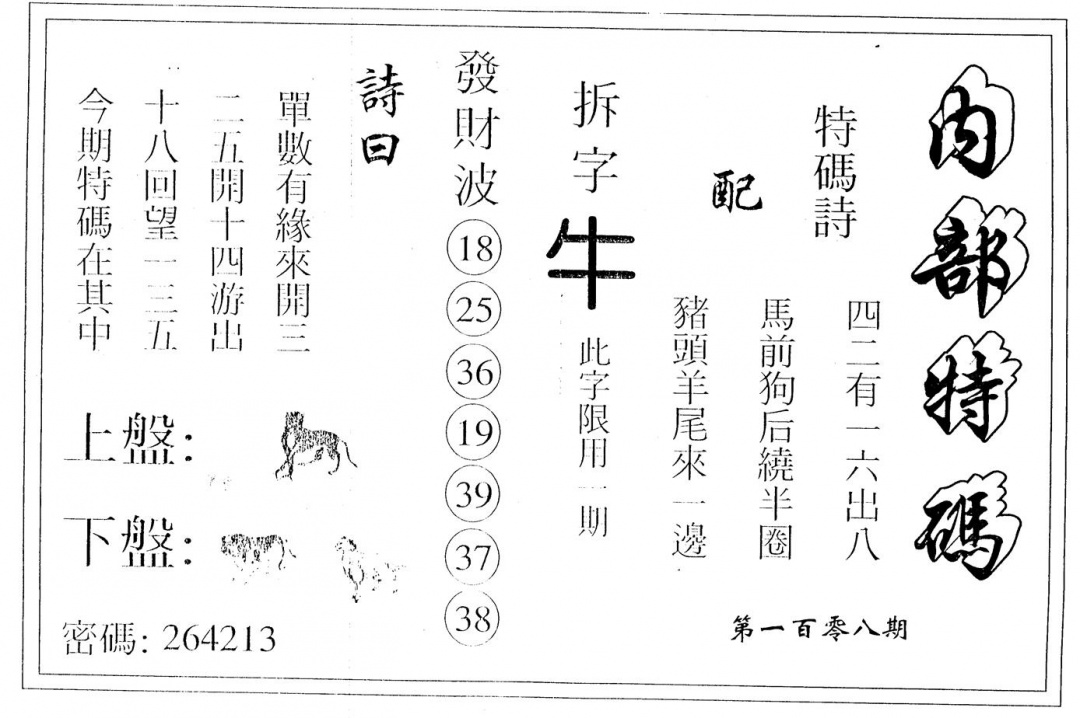 內部特碼
特碼詩
四二有一六出八
配
馬前狗后繞半圈
豬頭羊尾來一邊
第一百零八期
拆字
牛
此字限用一期
發財波
18
25
36
19
39
37
38
詩曰
單數有緣來開三
二五開十四游出
十八回望一三五
今期特碼在其中
上盤:
下盤:
密碼: 264213